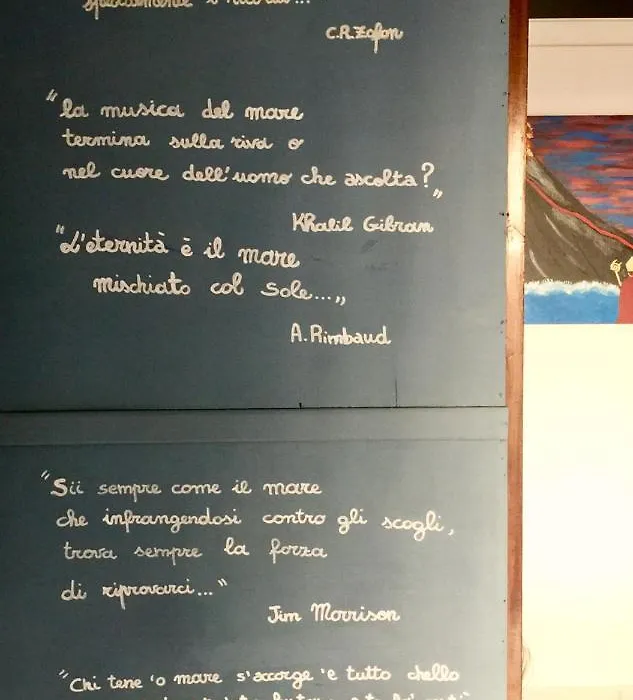 C.R.Zafon
"la musica del mare
termina sulla riva o
nel cuore dell'uomo che ascolta?"
Khalil Gibran
"L'eternità è il mare
mischiato col sole..."
A.Rimbaud
"Sii sempre come il mare
che infrangendosi contro gli scogli,
trova sempre la forza
di riprovarci..."
Jim Morrison
"Chi tene 'o mare s'accorge 'e tutto chello